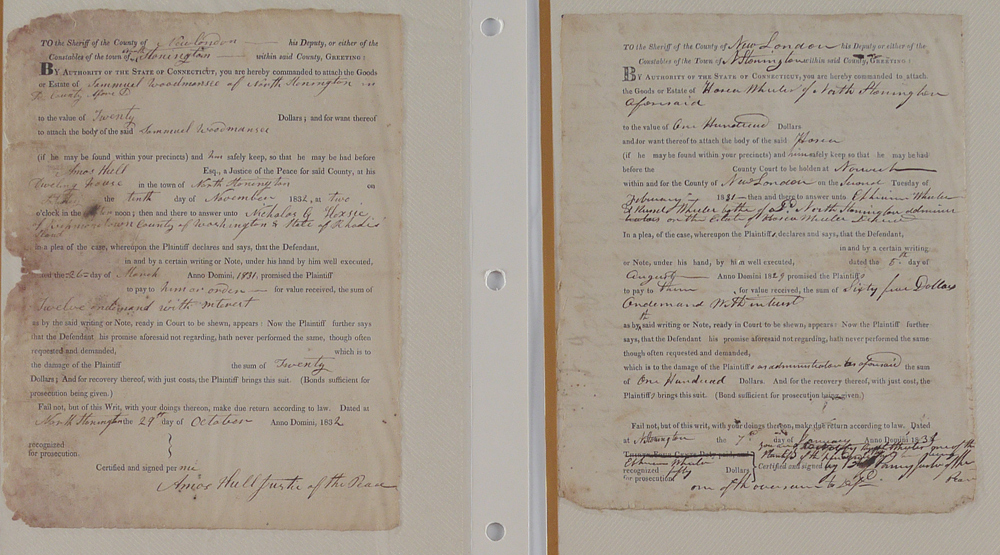 TO the Sheriff of the County of New London his Deputy, or either of the
Constables of the town of North Stonington within said County, GREETING:
BY AUTHORITY OF THE STATE OF CONNECTICUT, you are hereby commanded to attach the Goods
or Estate of Sammuel Woodmansee of North Stonington in
County
to the value of Twenty Dollars; and for want thereof
to attach the body of the said Sammuel Woodmansee
(if he may be found within your precincts) and him safely keep, so that he may be had before
Amos Hull Esq., a Justice of the Peace for said County, at his
Dweling house in the town of North Stonington on
the tenth day of November 1832, at two
o'clock in the noon; then and there to answer unto Nicholas G
County of Washington & State of Rhode
Island
in a plea of the case, whereupon the Plaintiff declares and says, that the Defendant,
in and by a certain writing or Note, under his hand by him well executed,
the 26 day of March Anno Domini, 1831, promised the Plaintiff
to pay to him or order for value received, the sum of
Twelve on demand with interest
as by the said writing or Note, ready in Court to be shewn, appears: Now the Plaintiff further says
that the Defendant his promise aforesaid not regarding, hath never performed the same, though often
requested and demanded, which is to
the damage of the Plaintiff the sum of Twenty
Dollars; And for recovery thereof, with just costs, the Plaintiff brings this suit. (Bonds sufficient for
prosecution being given.)
Fail not, but of this Writ, with your doings thereon, make due return according to law. Dated at
North Stonington the 29th day of October Anno Domini, 1832
recognized
for prosecution.
Certified and signed per me
Amos Hull Justice of the Peace
TO the Sheriff of the County of New London his Deputy or either of the
Constables of the Town of N Stonington within said County, GREETING:
BY AUTHORITY OF THE STATE OF CONNECTICUT, you are hereby commanded to attach
the Goods or Estate of Hosea Wheeler of North Stonington
aforesaid
to the value of One Hundred Dollars
and for want thereof to attach the body of said Hosea
(if he may be found within your precincts) and him safely keep so that he may be had
before the County Court to be holden at Norwich
within and for the County of New London on the Second Tuesday of
February 1831 then and there to answer unto Ephraim Wheeler
& Wheeler both of sd North Stonington adminis
trators on the Estate of Hosea Wheeler
In a plea, of the case, whereupon the Plaintiffs, declares and says, that the Defendant,
in and by a certain writing
or Note, under his hand, by him well executed, dated the 8th day of
August Anno Domini 1829 promised the Plaintiffs
to pay to them , for value received, the sum of Sixty five Dollars
On demand With interest
as by said writing or Note, ready in Court to be shewn, appears: Now the Plaintiff further
says, that the Defendant his promise aforesaid not regarding, hath never performed the same
though often requested and demanded,
which is to the damage of the Plaintiffs as administrators aforesaid the sum
of One Hundred Dollars. And for the recovery thereof, with just cost, the
Plaintiffs brings this suit. (Bond sufficient for prosecution being given.)
Fail not, but of this writ, with your doings thereon, make due return according to law. Dated
at N Stonington the 7th day of January Anno Domini 183
Ephraim Wheeler
recognized fifty Dollars
for prosecution
Certified and signed by Justice of the
Peace
one of the overseers to